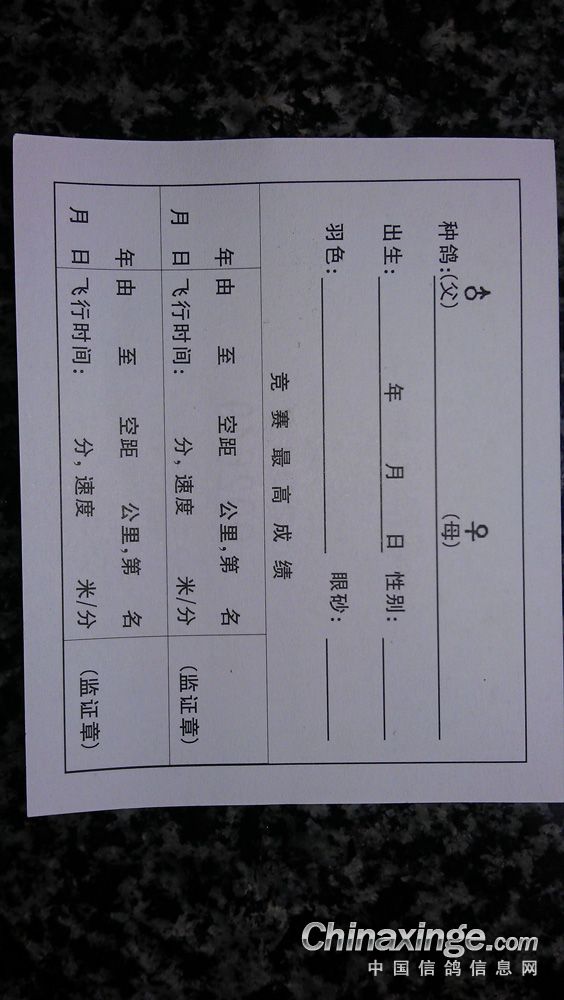 种鸽:(父)♂ (母)♀
出生: 年 月 日 性别:
羽色: 眼砂:
竞赛最高成绩
年 由 至 空距 公里,第 名
月 日 飞行时间: 分,速度 米/分 (监证章)
年 由 至 空距 公里,第 名
月 日 飞行时间: 分,速度 米/分 (监证章)
Chinaxinge.com
中国信鸽信息网